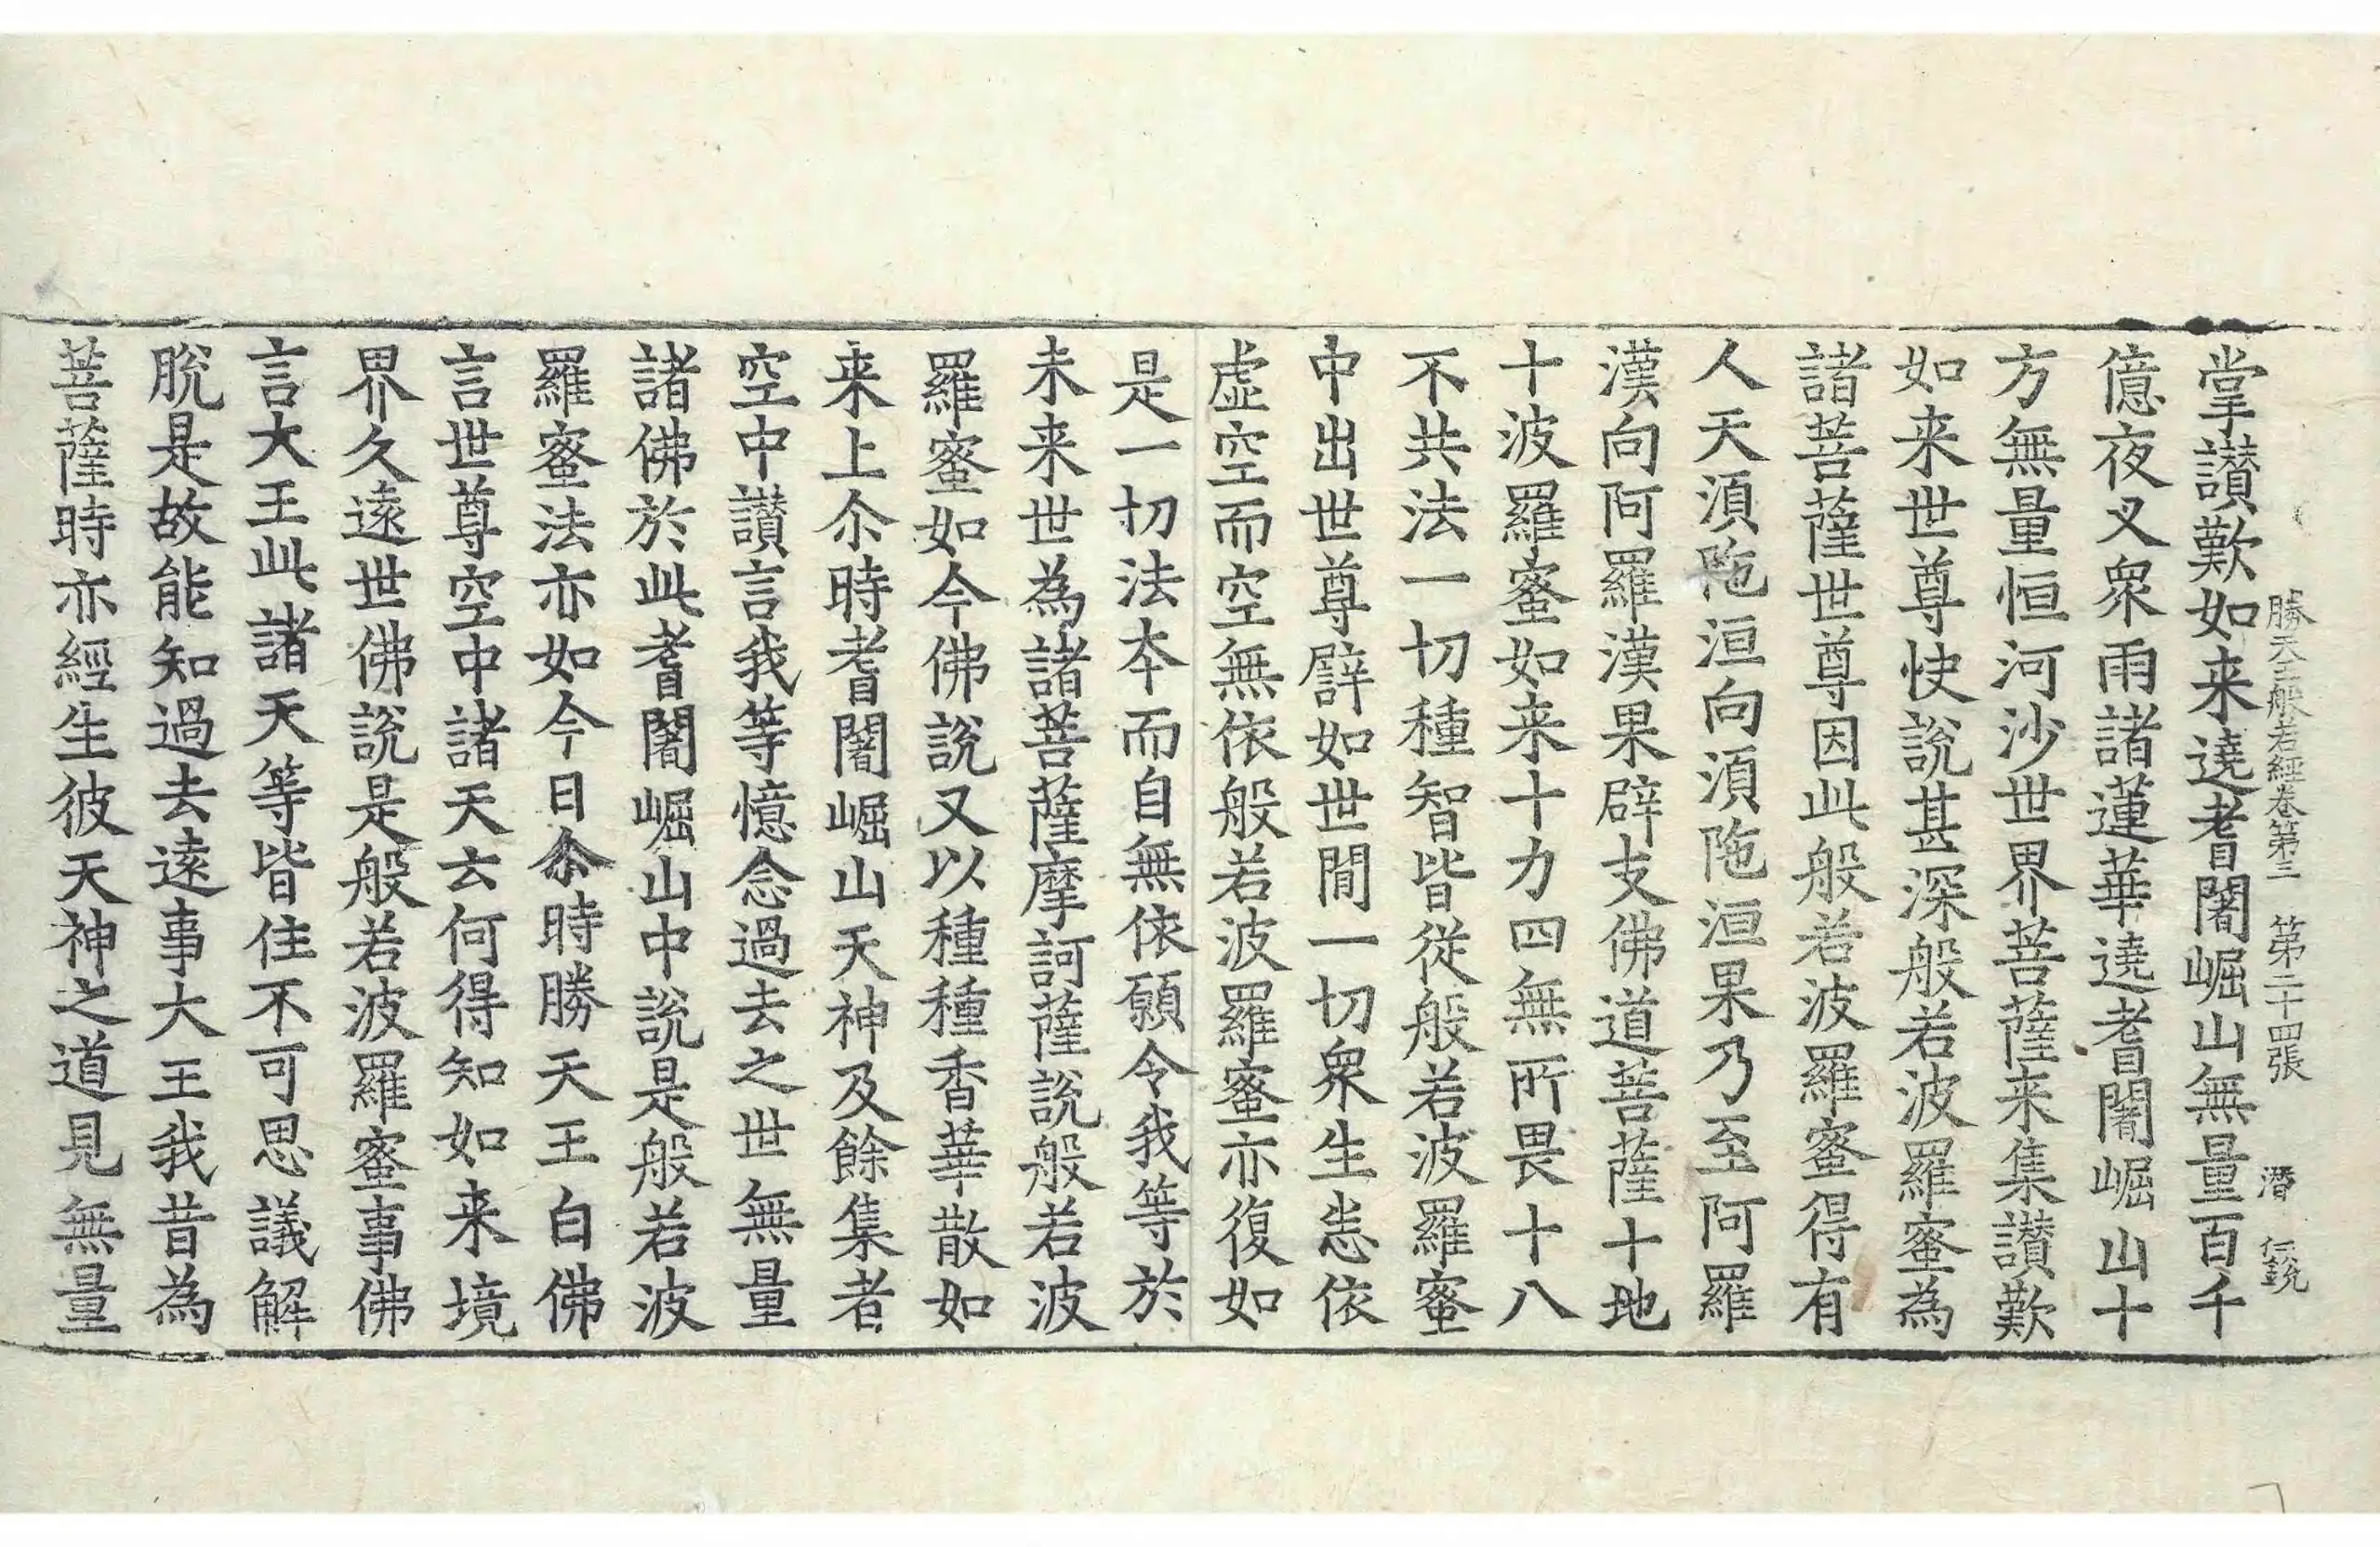 勝天王般若經卷第三 第二十四張 潛 伝銳
掌讃歎如来遶耆闍崛山無量百千
億夜叉衆雨諸蓮華遶耆闍崛山十
方無量恒河沙世界菩薩来集讃歎
如来世尊快說甚深般若波羅蜜為
諸菩薩世尊因此般若波羅蜜得有
人天湏陁洹向湏陁洹果乃至阿羅
漢向阿羅漢果辟支佛道菩薩十地
十波羅蜜如来十力四無所畏十八
不共法一切種智皆從般若波羅蜜
中出世尊譬如世閒一切衆生悉依
虛空而空無依般若波羅蜜亦復如
是一切法本而自無依願令我等於
未来世為諸菩薩摩訶薩說般若波
羅蜜如今佛說又以種種香華散如
来上尒時耆闍崛山天神及餘集者
空中讃言我等憶念過去之世無量
諸佛於此耆闍崛山中說是般若波
羅蜜法亦如今日尒時勝天王白佛
言世尊空中諸天云何得知如来境
界久遠世佛說是般若波羅蜜事佛
言大王此諸天等皆住不可思議解
脫是故能知過去遠事大王我昔為
菩薩時亦經生彼天神之道見無量